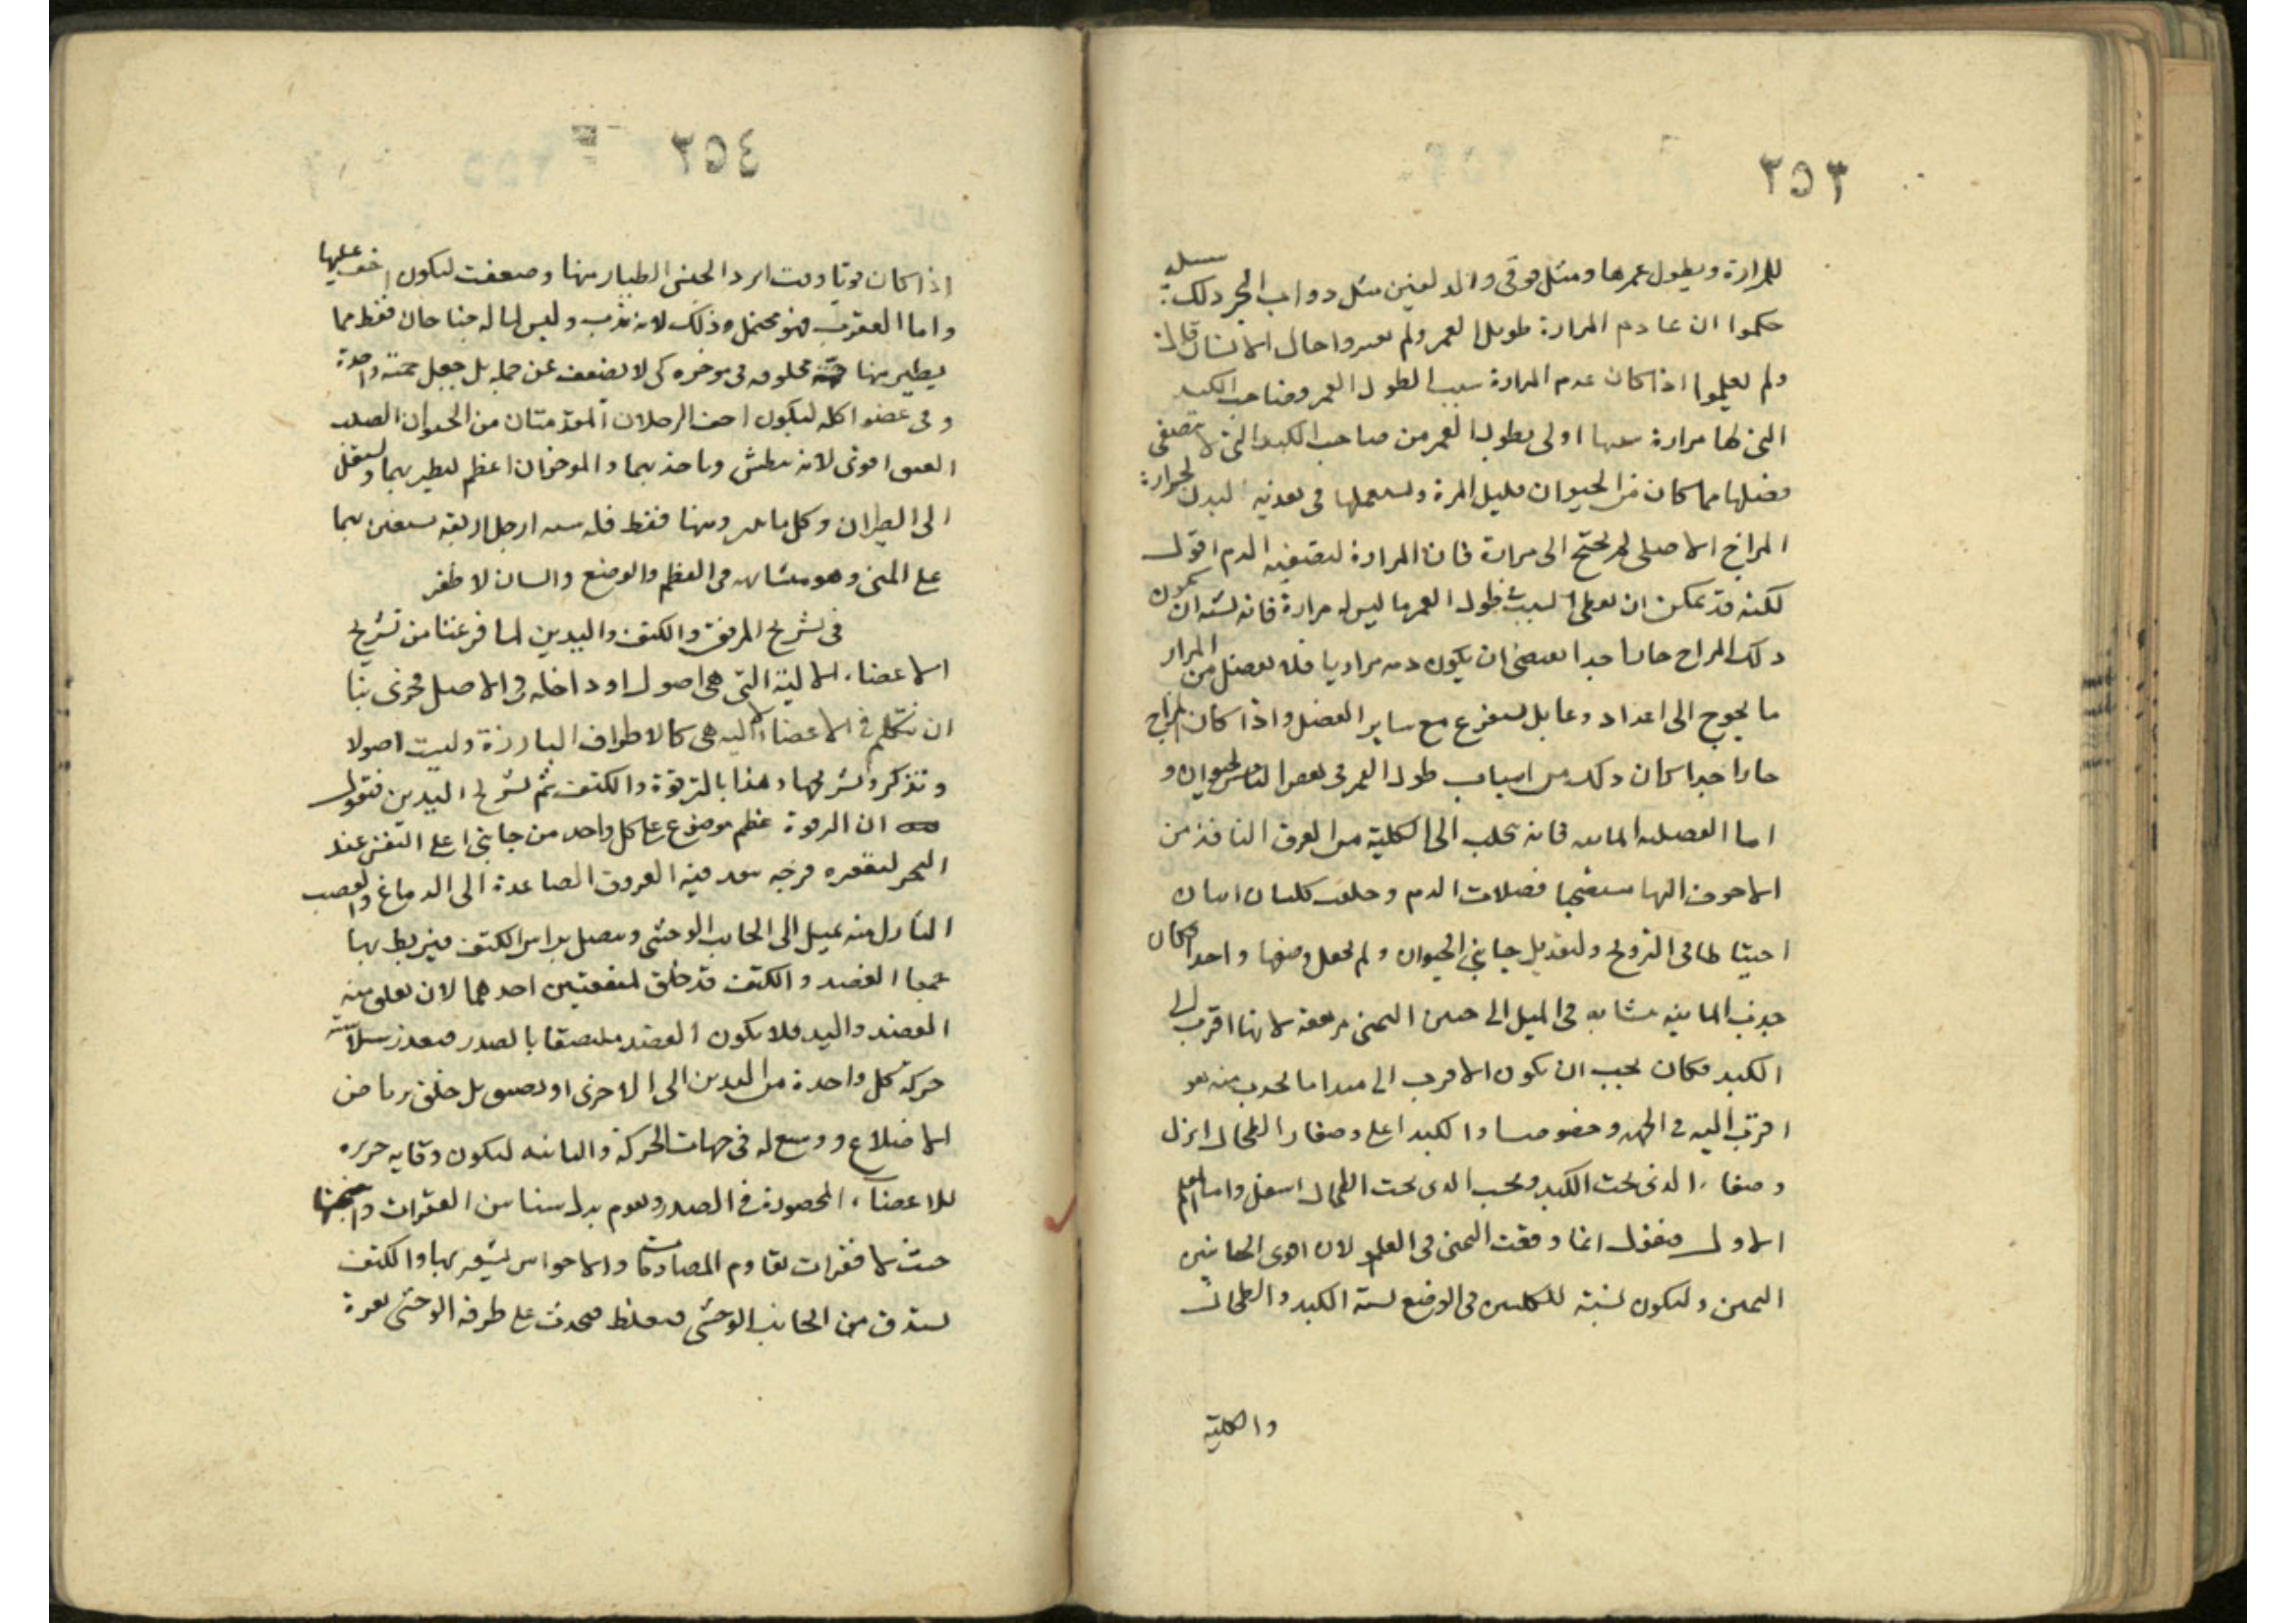 ٢٥٣
للمرارة ويطول عمرها ومثل فوقى والدلفين مثل دواب البحر ذلك
حكموا ان عادم المرارة طويل العمر ولم يعتبروا حال الانسان
ولم يعلموا اذا كان عدم المرارة سببا لطول العمر وصاحب الكبد
التى لها مرارة اولى بطول العمر من صاحب الكبد التى لا تصفى
فضلها مما كان من الحيوان قليل المرة ويستعملها فى تغذية البدن
المزاج الاصلى لم يحتج الى مرارة فان المرارة لتصفية الدم اقول
لكنه قد يمكن ان يعطى السبب فى طول العمر ما ليس له مرارة فانه يشبه ان يكون
ذلك المزاج حارا جدا يقتضى ان يكون دمه مراريا فلا يفضل من المرار
ما يحوج الى اعداد وعا بل يستفرغ مع ساير الفضل واذا كان المزاج
حارا جدا كان ذلك من اسباب طول العمر فى بعض الناس
اما الفضلة المايية فانه تجلب الى الكلية من العرق النافذ من
الاجوف اليها فضلات الدم وخلقت كليتان اثنتان
احتياطا فى التزويج ولتعديل جانبى الحيوان ولم يجعل وضعها واحدا فكان
جذب المايية متشابه فى الميل الى اليمنى مرتفعة لانها اقرب الى
الكبد فكان يجب ان يكون الاقرب الى مبدا ما يجذب منه هو
اقرب اليه فى الجهة وخصوصا والكبد اعلى وصفار الطحال انزل
وصفار الذى تحت الكبد ويجب الذى تحت الطحال اسفل واما المعلم
الاول فيقول انما وقعت اليمنى فى العلو لان اقوى الجانبين
اليمين وليكون نسبة للكليتين فى الوضع نسبة الكبد والطحال
والكلية
٢٥٤
اذا كان الجنس الطيار منها وضعفت ليكون اخف عليها
واما العقرب فهو محتمل وذلك لانه يدب وليس له جناحان فقط مما
يطير بها مخلوقة فى موخره كى لا يضعف عن حمله بل جعل حمته واحدة
وفى عضو اكله ليكون اخف الرجلان المقدمتان من الحيوان الصلب
العين اقوى لانه يبطش وياخذ بهما والموخران اعظم ليطير بهما وليستقل
الى الطيران وكل ما فقط فله ستة ارجل اربعة يستعين بها
على المشى وهو متشابه فى العظم والوضع والسان لا ظفر
فى تشريح المرفق والكتف واليدين لما فرغنا من تشريح
الاعضاء الالية التى هى اصول او داخلة فى الاصل فحرى بنا
ان نتكلم فى الاعضاء الالية هى كالاطراف البارزة وليست اصولا
ونذكر تشريحها وهذا بالترقوة والكتف ثم تشريح اليدين فنقول
ان الترقوة عظم موضوع على كل واحد من جانبى اعلى القص عند
النحر لتقعره فرجة تنفذ فيه العروق الصاعدة الى الدماغ والعصب
النازل منه يميل الى الجانب الوحشى ويتصل براس الكتف فيرتبط بها
جميعا العضد والكتف قد خلق لمنفعتين احدهما لان تعلق منه
العضد واليد فلا يكون العضد ملتصقا بالصدر فتعذر سلاسة
حركة كل واحدة من اليدين الى الاخرى او تضيق بل خلق بريا من
الاضلاع ووسع له فى جهات الحركة والثانية ليكون وقاية حريزة
للاعضاء المحصورة فى الصدر ويقوم بدل سناسن الفقرات واجنحتها
حيث لا فقرات تقاوم المصادمات ولا حواس يشعر بها والكتف
يستدق من الجانب الوحشى فيغلظ فيحدث على طرفه الوحشى نقرة